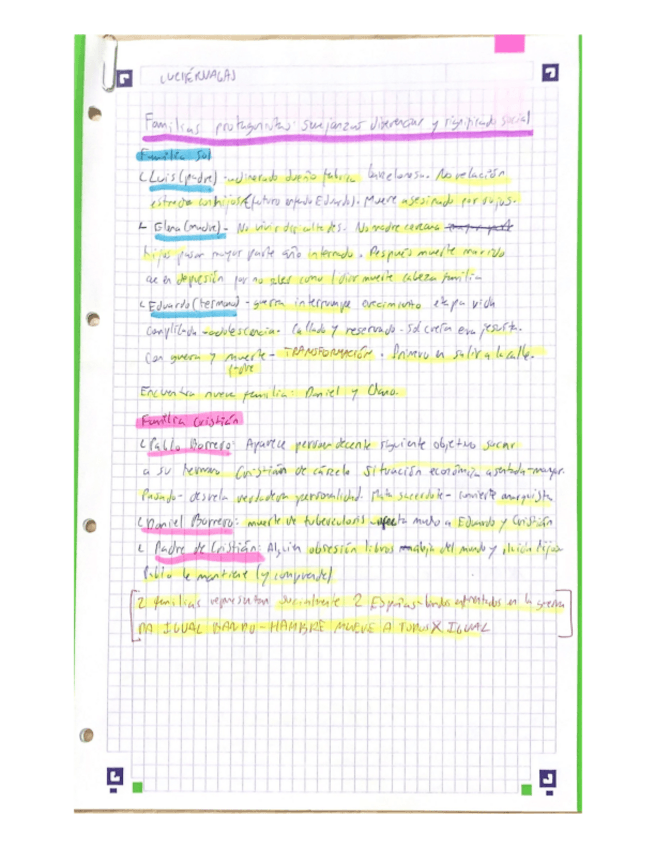 LUCIÉRNAGAS
Familias protagonistas: semejanzas diferencias y significado social
Familia Sol
Luis (padre) - adinerado dueño fábrica barcelonesa. No relación
estrecha con hijos (futuro enfado Eduardo). Muere asesinado por sus
Elena (madre) - No vivir dificultades. No madre cercana
hijos pasar mayor parte año internado. Después muerte marido
cae en depresión por no saber como lidiar muerte cabeza familia
Eduardo (hermano) - guerra interrumpe crecimiento etapa vida
complicada - adolescencia. Callado y reservado - Sol creía era jesuita.
Con guerra y muerte - TRANSFORMACIÓN. Primero en salir a la calle.
padre
Encuentra nueva familia: Daniel y Chano.
Familia Cristián
Pablo Borrero: Aparece persona decente siguiente objetivo sacar
a su hermano Cristián de cárcel. Situación económica asentada - mayor.
Pasado - desvela verdadera personalidad. Mata sacerdote - convierte anarquista
Daniel Borrero: muerte de tuberculosis afecta mucho a Eduardo y Cristián
Padre de Cristián: Alguien obsesión libros aleja del mundo y hijos
Pablo le mantiene (y comprende)
2 familias representan socialmente 2 Españas - bandos enfrentados en la guerra
DA IGUAL BANDO - HAMBRE MUEVE A TODOS X IGUAL